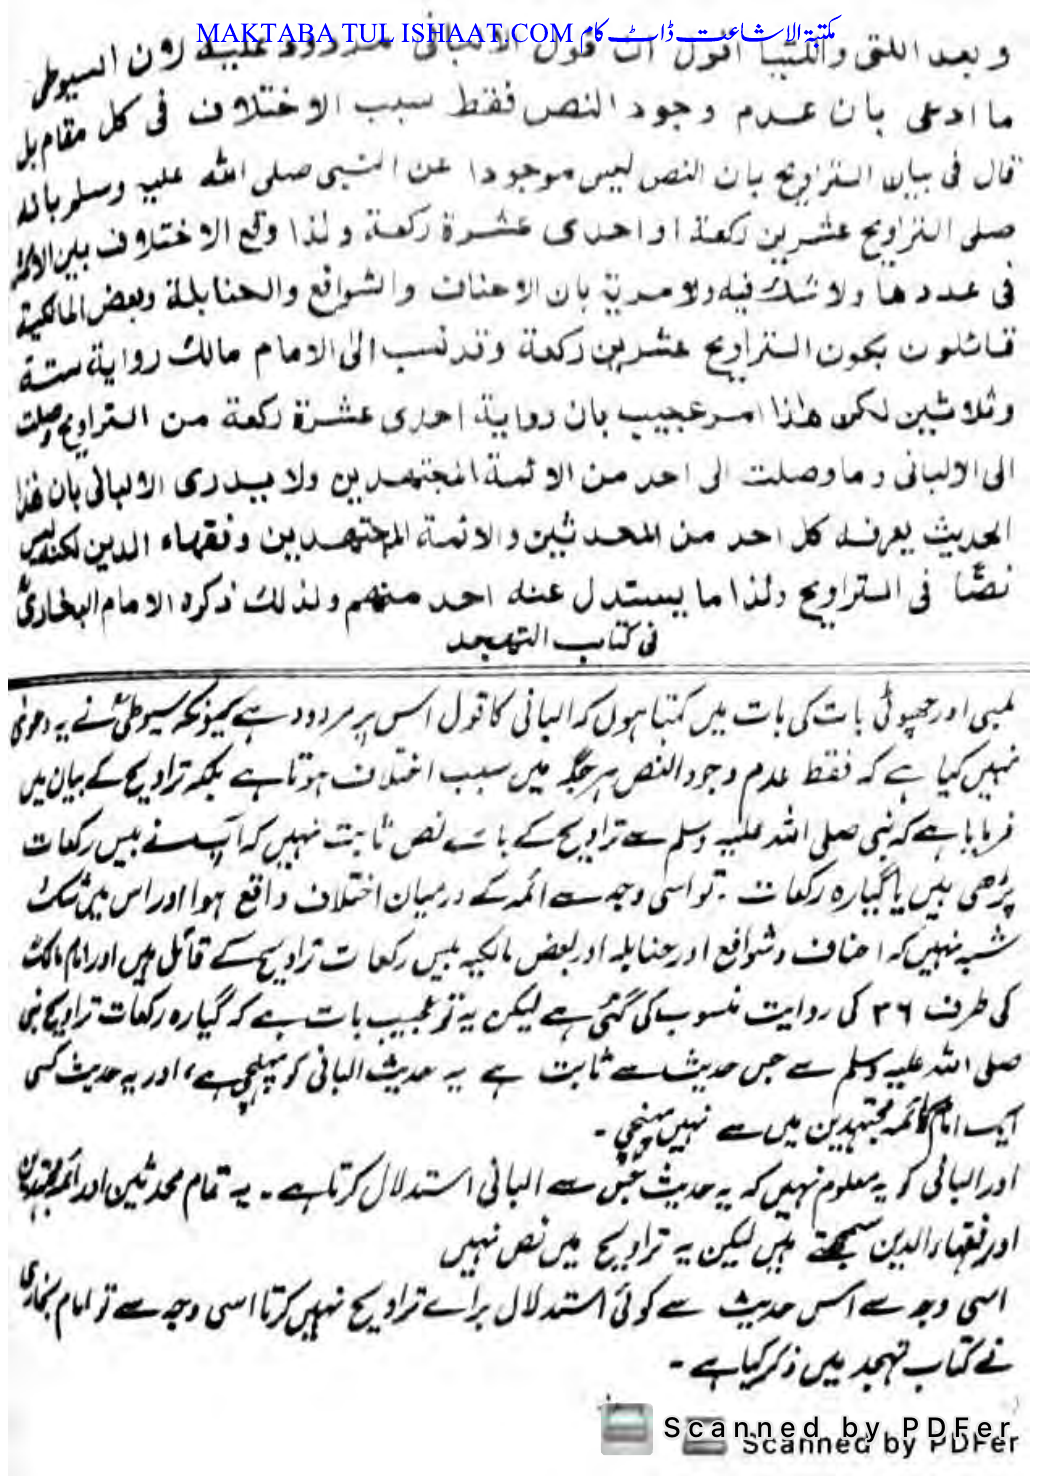 MAKTABA TUL ISHAAT.COM مکتبۃ الاشاعت ڈاٹ کام
و بعد اللتی واللتیا اقول ان قول الالبانی مردود علیہ لان السیوطی
ما ادعی بان عدم وجود النص فقط سبب الاختلاف فی کل مقام بل
قال فی بیان التراویح بان النص لیس موجودا عن النبی صلی اللہ علیہ وسلم بانہ
صلی التراویح عشرین رکعة او احدی عشرة رکعة ولذا وقع الاختلاف بین الائمة
فی عددها ولا شک فیه ولا مریة بان الاحناف والشوافع والحنابلة وبعض المالکیة
قائلون بکون التراویح عشرین رکعة وقد نسب الی الامام مالک روایة ستة
وثلاثین لکن هذا امر عجیب بان روایة احدی عشرة رکعة من التراویح وصلت
الی الالبانی وما وصلت الی احد من الائمة المجتهدین ولا یدری الالبانی بان هذا
الحدیث یعرفه کل احد من المحدثین والائمة المجتهدین وفقهاء الدین لکنه لیس
نصًا فی التراویح ولذا ما یستدل عنه احد منهم ولذلک ذکره الامام البخاریؒ
فی کتاب التهجد
لمبی اور چھوٹی بات کی بات میں کہتا ہوں کہ البانی کا قول اس پر مردود ہے کیونکہ سیوطیؒ نے یہ دعویٰ
نہیں کیا ہے کہ فقط عدم وجود النص ہر جگہ میں سبب اختلاف ہوتا ہے بلکہ تراویح کے بیان میں
فرمایا ہے کہ نبی صلی اللہ علیہ وسلم سے تراویح کے بارے نص ثابت نہیں کہ آپ نے بیس رکعات
پڑھی ہیں یا گیارہ رکعات ۔ تو اسی وجہ سے ائمہ کے درمیان اختلاف واقع ہوا اور اس میں شک
شبہ نہیں کہ احناف وشوافع اور حنابلہ اور بعض مالکیہ بیس رکعات تراویح کے قائل ہیں اور امام مالکؒ
کی طرف ۳۶ کی روایت منسوب کی گئی ہے لیکن یہ تو عجیب بات ہے کہ گیارہ رکعات تراویح نبی
صلی اللہ علیہ وسلم سے جس حدیث سے ثابت ہے یہ حدیث البانی کو پہنچی ہے، اور یہ حدیث کسی
ایک امام کو ائمہ مجتہدین میں سے نہیں پہنچی ۔
اور البانی کو یہ معلوم نہیں کہ یہ حدیث جس سے البانی استدلال کرتا ہے ۔ یہ تمام محدثین اور ائمہ مجتہدین
اور فقہاء الدین سمجھتے ہیں لیکن یہ تراویح میں نص نہیں
اسی وجہ سے اس حدیث سے کوئی استدلال برائے تراویح نہیں کرتا اسی وجہ سے تو امام بخاریؒ
نے کتاب تہجد میں ذکر کیا ہے ۔
Scanned by PDFer
Scanned by PDFer